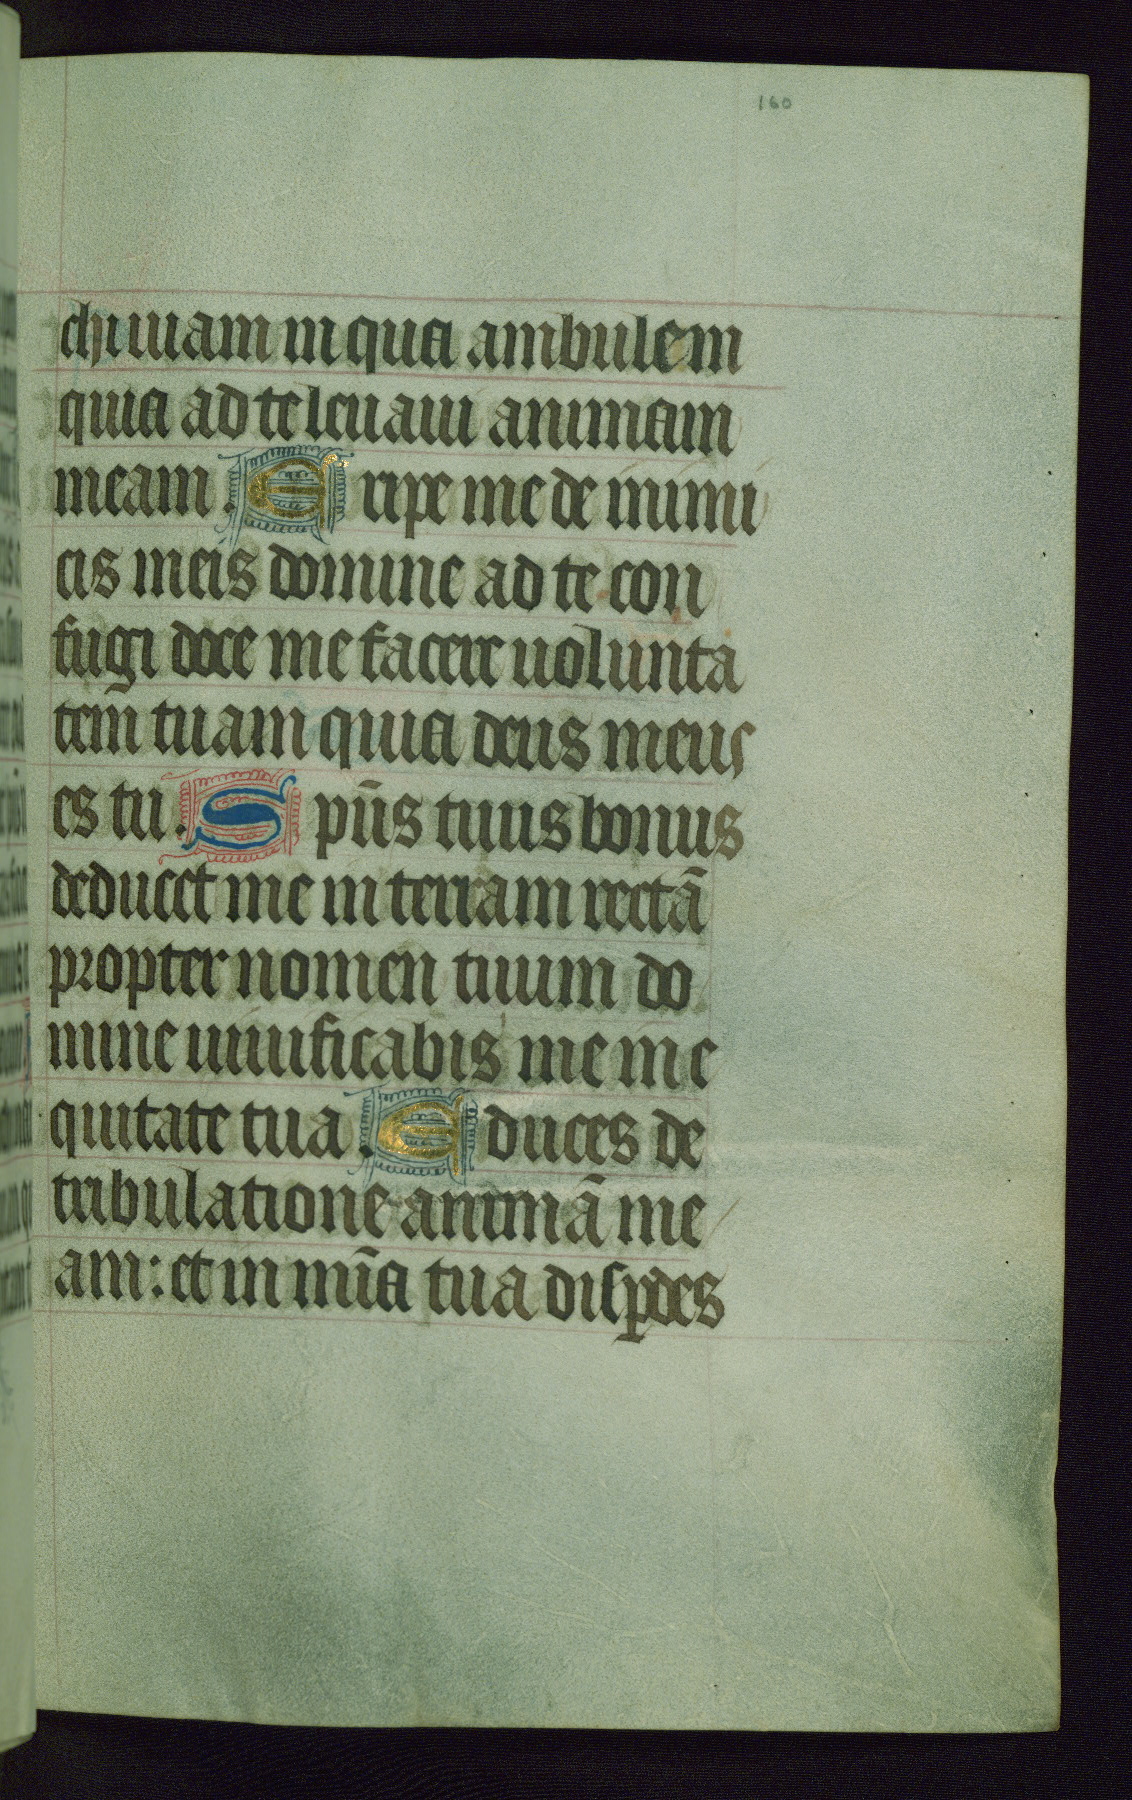 160
chi uiam in qua ambulem
quia ad te leuaui animam
meam. Eripe me de inimi
cis meis domine ad te con
fugi doce me facere uolunta
tem tuam quia deus meus
es tu. Spūs tuus bonus
deducet me in terram rectā
propter nomen tuum do
mine uiuificabis me in e
quitate tua. Educes de
tribulatione animā me
am: et in mīa tua disꝑdes